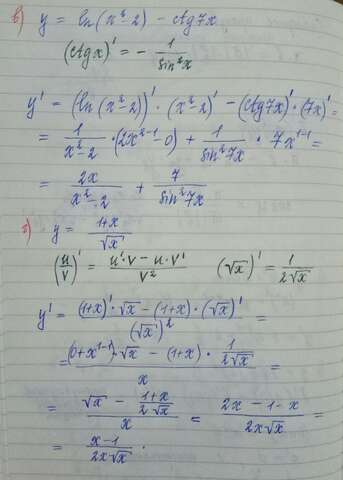 в) y = ln(x²-2) - ctg7x
(ctgx)' = - 1/sin²x
y' = (ln(x²-2))' · (x²-2)' - (ctg7x)' · (7x)' =
= 1/(x²-2) · (2x²⁻¹-0) + 1/sin²7x · 7x¹⁻¹ =
= 2x/(x²-2) + 7/sin²7x
г) y = (1+x)/√x
(u/v)' = (u'·v - u·v')/v² (√x)' = 1/(2√x)
y' = ((1+x)'·√x - (1+x)·(√x)')/(√x)² =
= ((0+x¹⁻¹)·√x - (1+x)·1/(2√x))/x =
= (√x - (1+x)/(2√x))/x = (2x-1-x)/(2x√x) =
= (x-1)/(2x√x) .